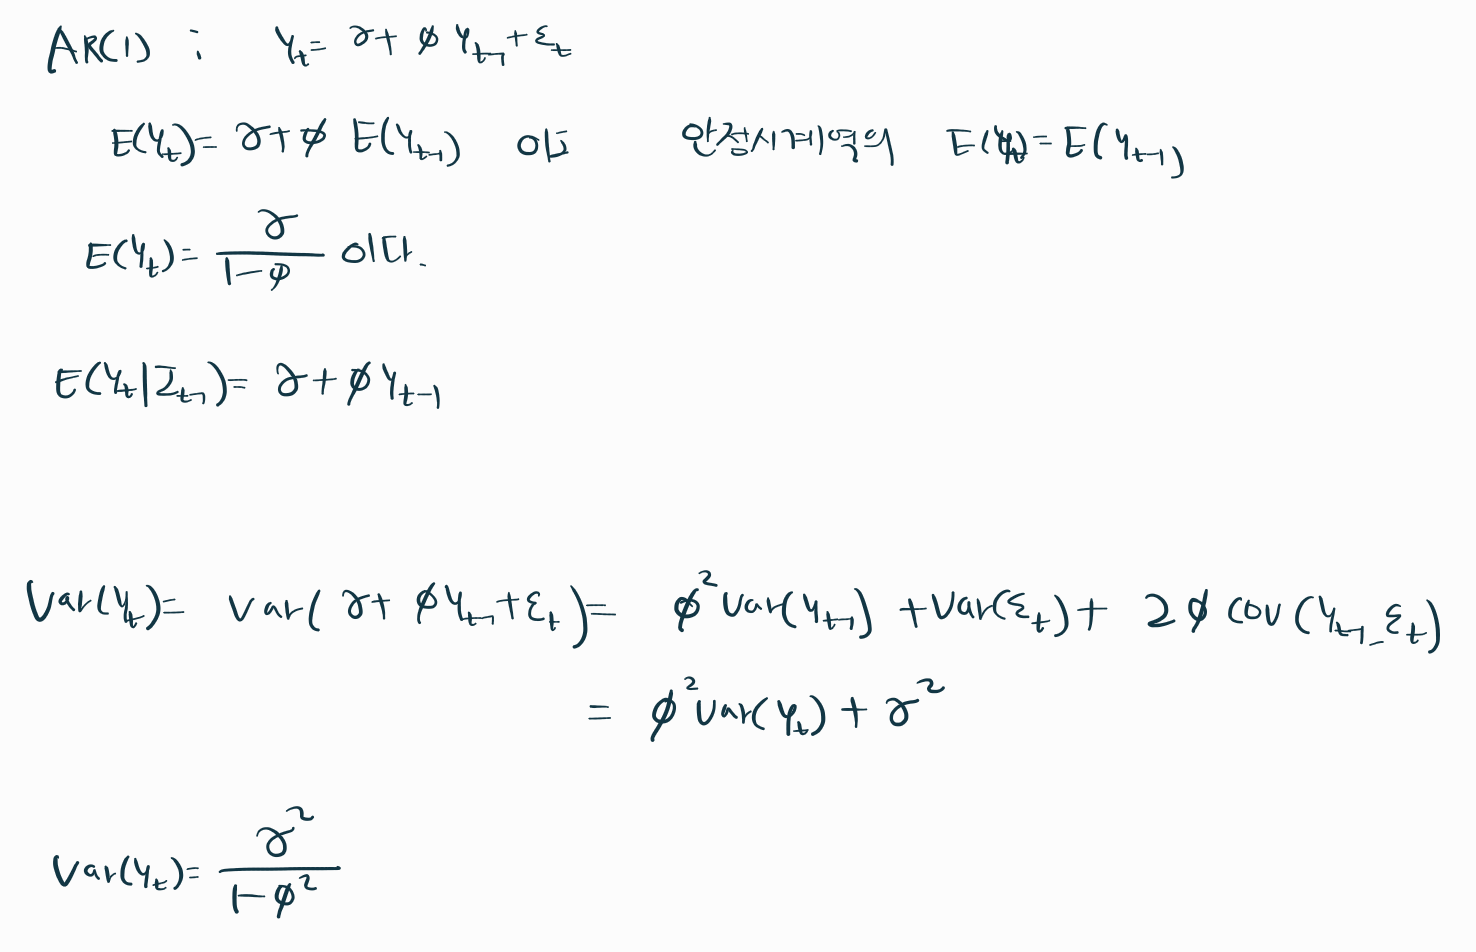 AR(1) : Y_t = γ + φ Y_{t-1} + ε_t
E(Y_t) = γ + φ E(Y_{t-1}) 이고 안정시계열의 E(Y_t) = E(Y_{t-1})
E(Y_t) = γ / (1-φ) 이다.
E(Y_t | I_{t-1}) = γ + φ Y_{t-1}
Var(Y_t) = Var(γ + φ Y_{t-1} + ε_t) = φ² Var(Y_{t-1}) + Var(ε_t) + 2φ cov(Y_{t-1}, ε_t)
= φ² Var(Y_t) + γ²
Var(Y_t) = γ² / (1-φ²)